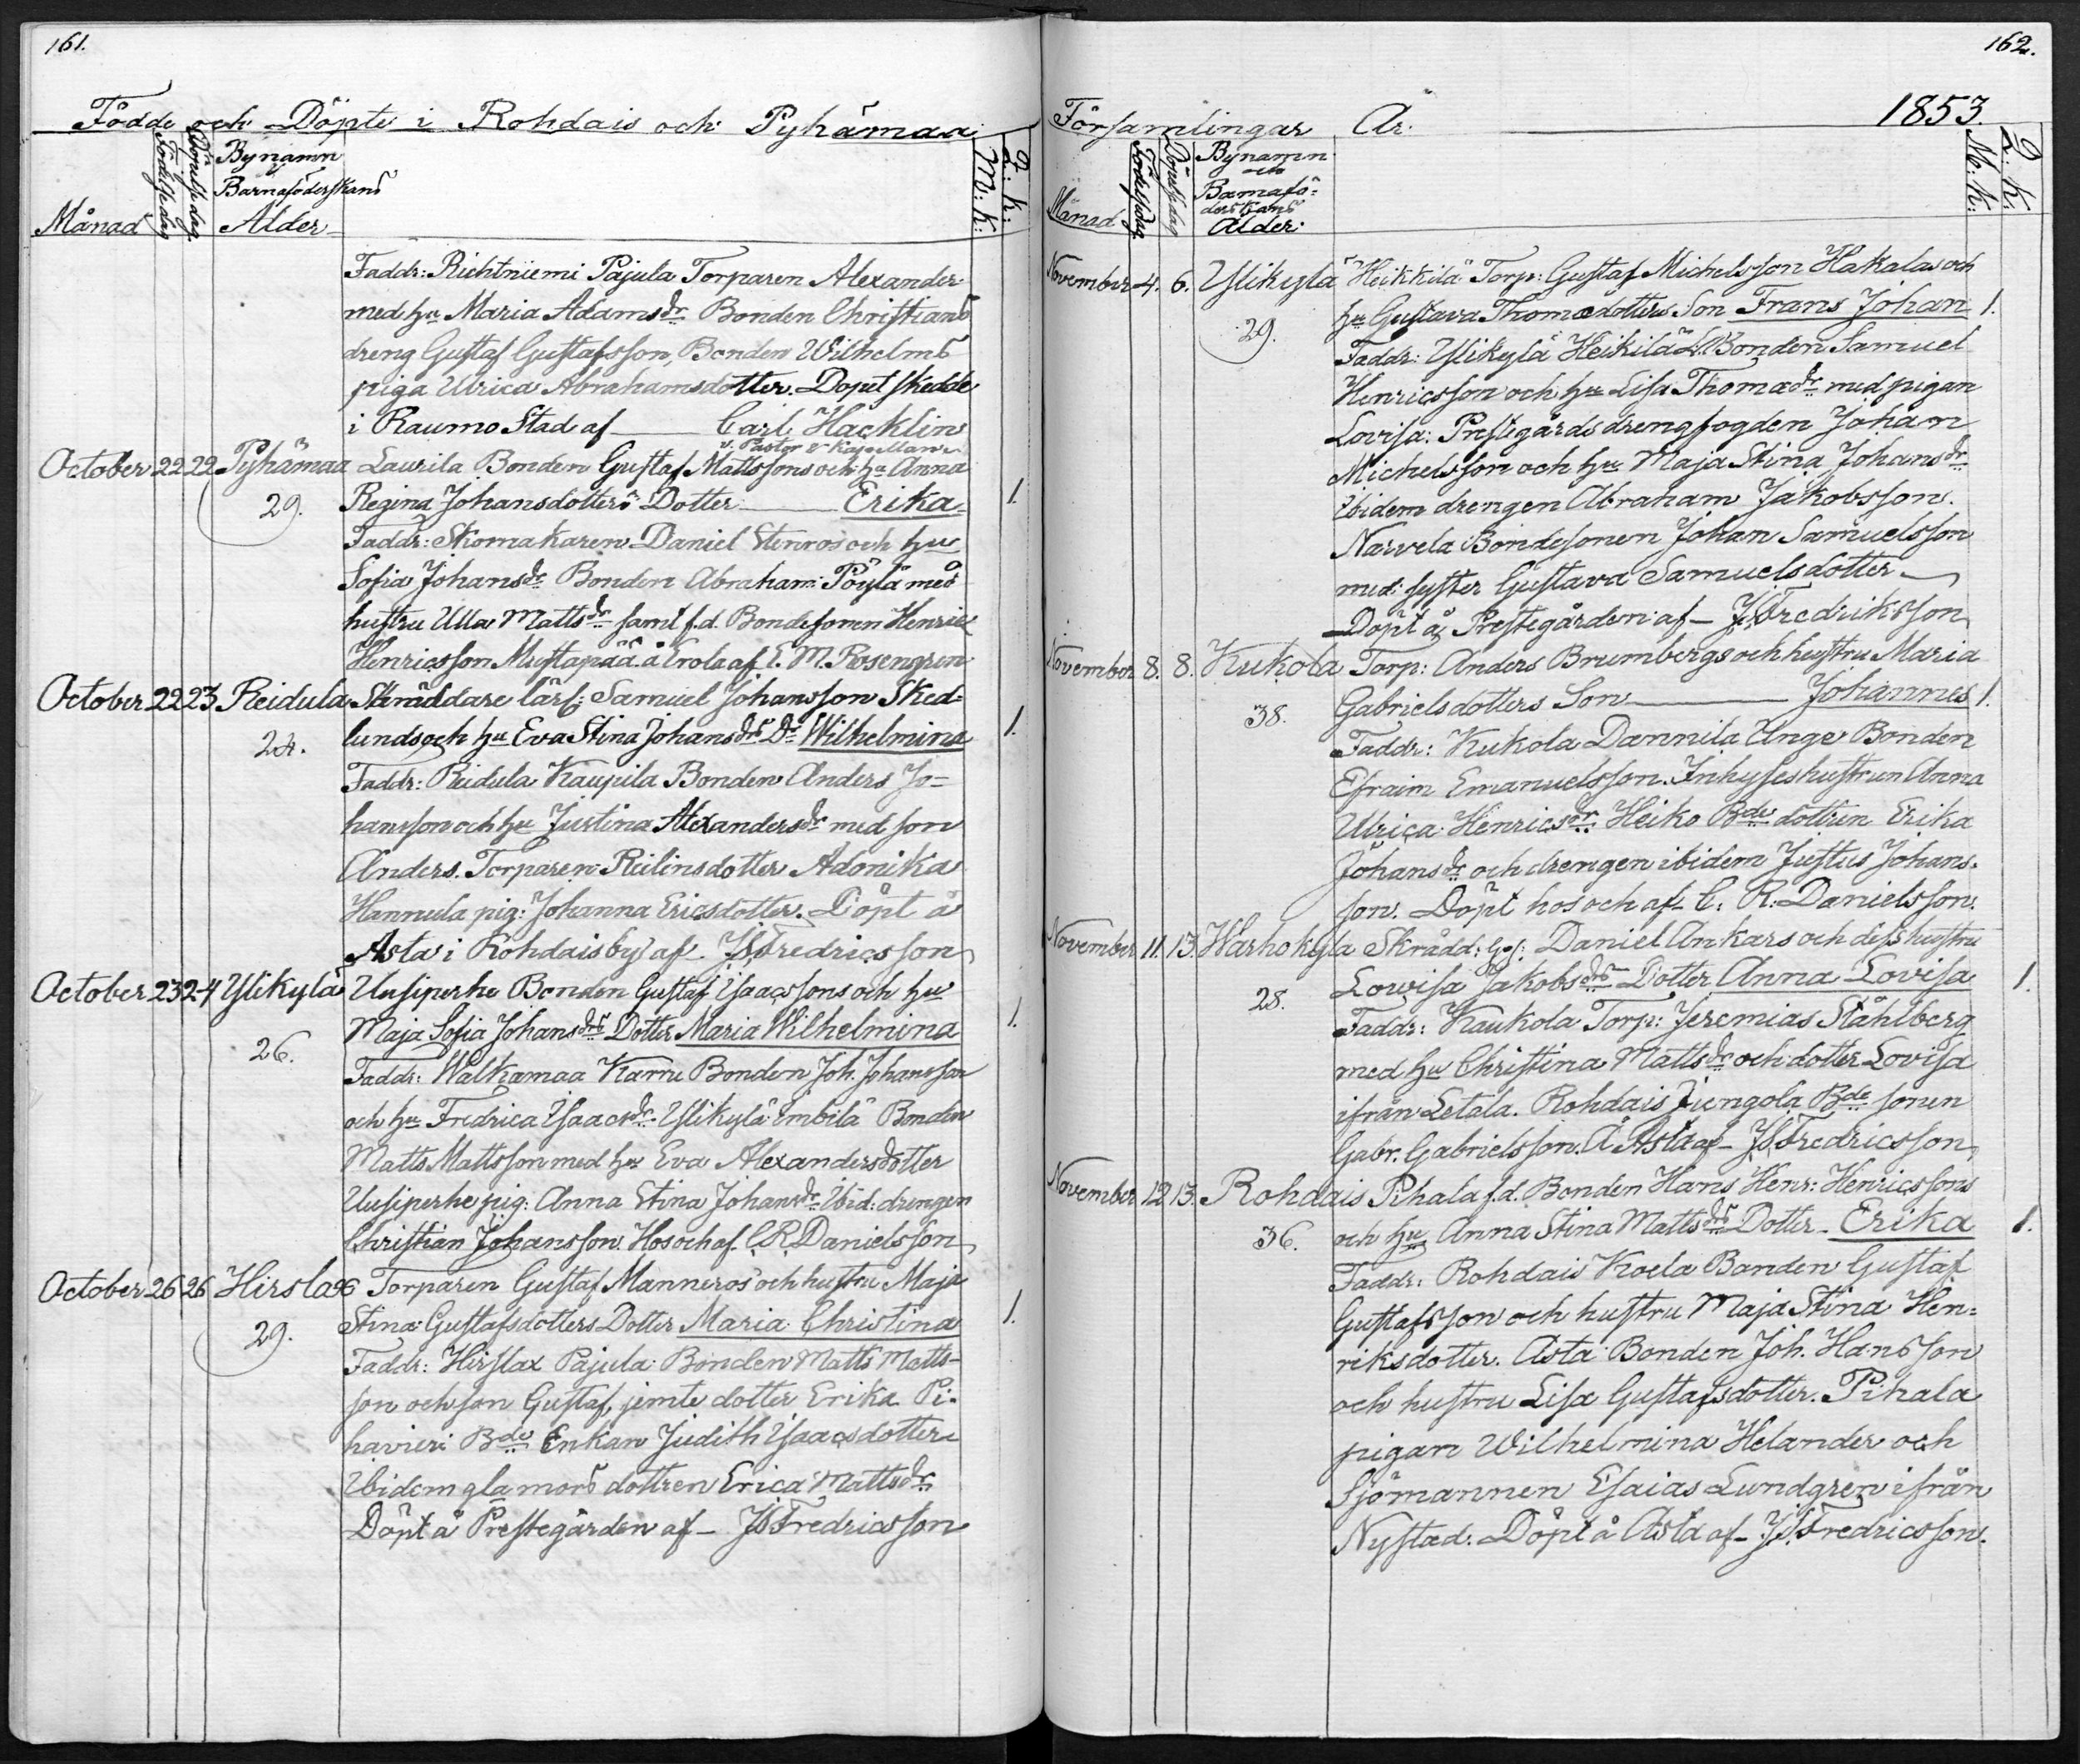 161.
Födde och Döpte i Rohdais och Pyhämaa
Månad
Födelse dag
Döpelse dag.
Bynamn
Barnaföderskans
Ålder
M: K:
Q: K:
Faddr: Richtniemi Pajula Torparen Alexander
med hu Maria Adamsdr Bonden Christians
dreng Gustaf Gustafsson, Bonden Wilhelms
piga Ulrica Abrahamsdotter. Dopet skedde
i Raumo Stad af Carl Hacklin
v. Pastor & Kapellan
October 22 22 Pyhämaa Laurila Bonden Gustaf Mattssons och hu Anna
29. Regina Johansdotters Dotter Erika. 1.
Faddr: Skomakaren Daniel Stenros och hu
Sofia Johansdr Bonden Abraham Pöylä med
hustru Ulla Mattsdr samt f.d. Bondesonen Henric
Henricsson Mustapää. å Erola af E. M. Rosengren
October 22 23 Reidula Skräddare lärl: Samuel Johansson Sked-
24. lunds och hu Eva Stina Johansdrs Dr Wilhelmina 1.
Faddr: Reidula Kaupila Bonden Anders Jo-
hansson och hu Justina Alexandersdr med son
Anders. Torparen Reilins dotter Adonika
Hannula pig: Johanna Ericsdotter. Döpt å
Asta i Rohdais by af JFredricsson
October 23 24 Ylikylä Uusiperhe Bonden Gustaf Isaacssons och hu
26. Maja Sofia Johansdrs Dotter Maria Wilhelmina 1.
Faddr: Walkamaa Karru Bonden Joh. Johansson
och hu Fredrica Isaacsdr. Ylikylä Embilä Bonden
Matts Mattsson med hu Eva Alexandersdotter
Uusiperhe pig: Anna Stina Johansdr Ibid: drengen
Christian Johansson. Hos och af C. R. Danielsson
October 26 26 Hirslax Torparen Gustaf Manneros och hustru Maja
29. Stina Gustafsdotters Dotter Maria Christina 1.
Faddr: Hirslax Pajula Bonden Matts Matts-
son och son Gustaf, jemte dotter Erika Pi-
havieri Bde Enkan Judith Isaacsdotter
Ibidem gla mors dottren Erica Mattsdr
Döpt å Prestegården af - JFredricsson
162.
Församlingar År: 1853.
Månad
Födelsedag.
Döpelsedag
Bynamn
och
Barnafö-
derskans
Ålder:
M: K:
Q: K:
November 4. 6. Ylikylä Heikkilä Torp: Gustaf Michelsson Hakalas och
29. hu Gustava Thomædotters Son Frans Johan 1.
Faddr: Ylikylä Heikilä L. Bonden Samuel
Henricsson och hu Lisa Thomædr med pigan
Lovisa: Prestegårds drengfogden Johan
Michelsson och hu Maja Stina Johansdr
Ibidem drengen Abraham Jakobsson.
Narvela Bondesonen Johan Samuelsson
med syster Gustava Samuelsdotter
Döpt å Prestegården af - JFredriksson
November 8. 8. Kukola Torp: Anders Brumbergs och hustru Maria
38. Gabrielsdotters Son Johannes 1.
Faddr: Kukola Dannila Unge Bonden
Efraim Emanuelsson. Inhyseshustrun Anna
Ulrica Henricsdr Heiko Bde dottren Erika
Johansdr och drengen ibidem Justus Johans-
son. Döpt hos och af C. R. Danielsson
November 11. 13. Warhokyla Skrädd: Ges: Daniel Ankars och dess hustru
28. Lowisa Jakobsdrs Dotter Anna Lovisa 1.
Faddr: Kaukola Torp: Jeremias Ståhlberg
med hu Christina Mattsdr och dotter Lovisa
ifrån Letala. Rohdais Jungola Bde sonen
Gabr. Gabrielsson. Å Asta af - JFredricsson
November 12 13. Rohdais Pihala f.d. Bonden Hans Henr: Henricssons
36. och hu Anna Stina Mattsdrs Dotter - Erika 1.
Faddr: Rohdais Koela Bonden Gustaf
Gustafsson och hustru Maja Stina Hen-
riksdotter. Asta Bonden Joh. Hansson
och hustru Lisa Gustafsdotter. Pihala
pigan Wilhelmina Helander och
Sjömannen Esaias Lundgren ifrån
Nystad. Döpt å Asta af - JFredricsson.